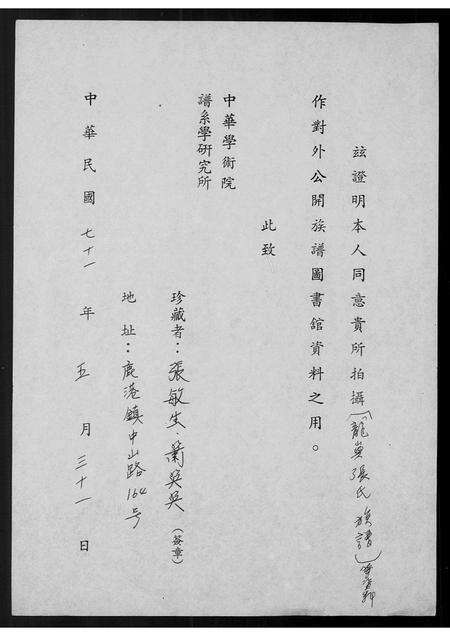 茲證明本人同意貴所拍攝(龍崗張氏族譜)
作對外公開族譜圖書館資料之用。
此致
中華學術院
譜系學研究所
珍藏者：張敏生．蕭吳（簽章）
地址：鹿港鎮中山路164号
中華民國七十一年五月三十一日